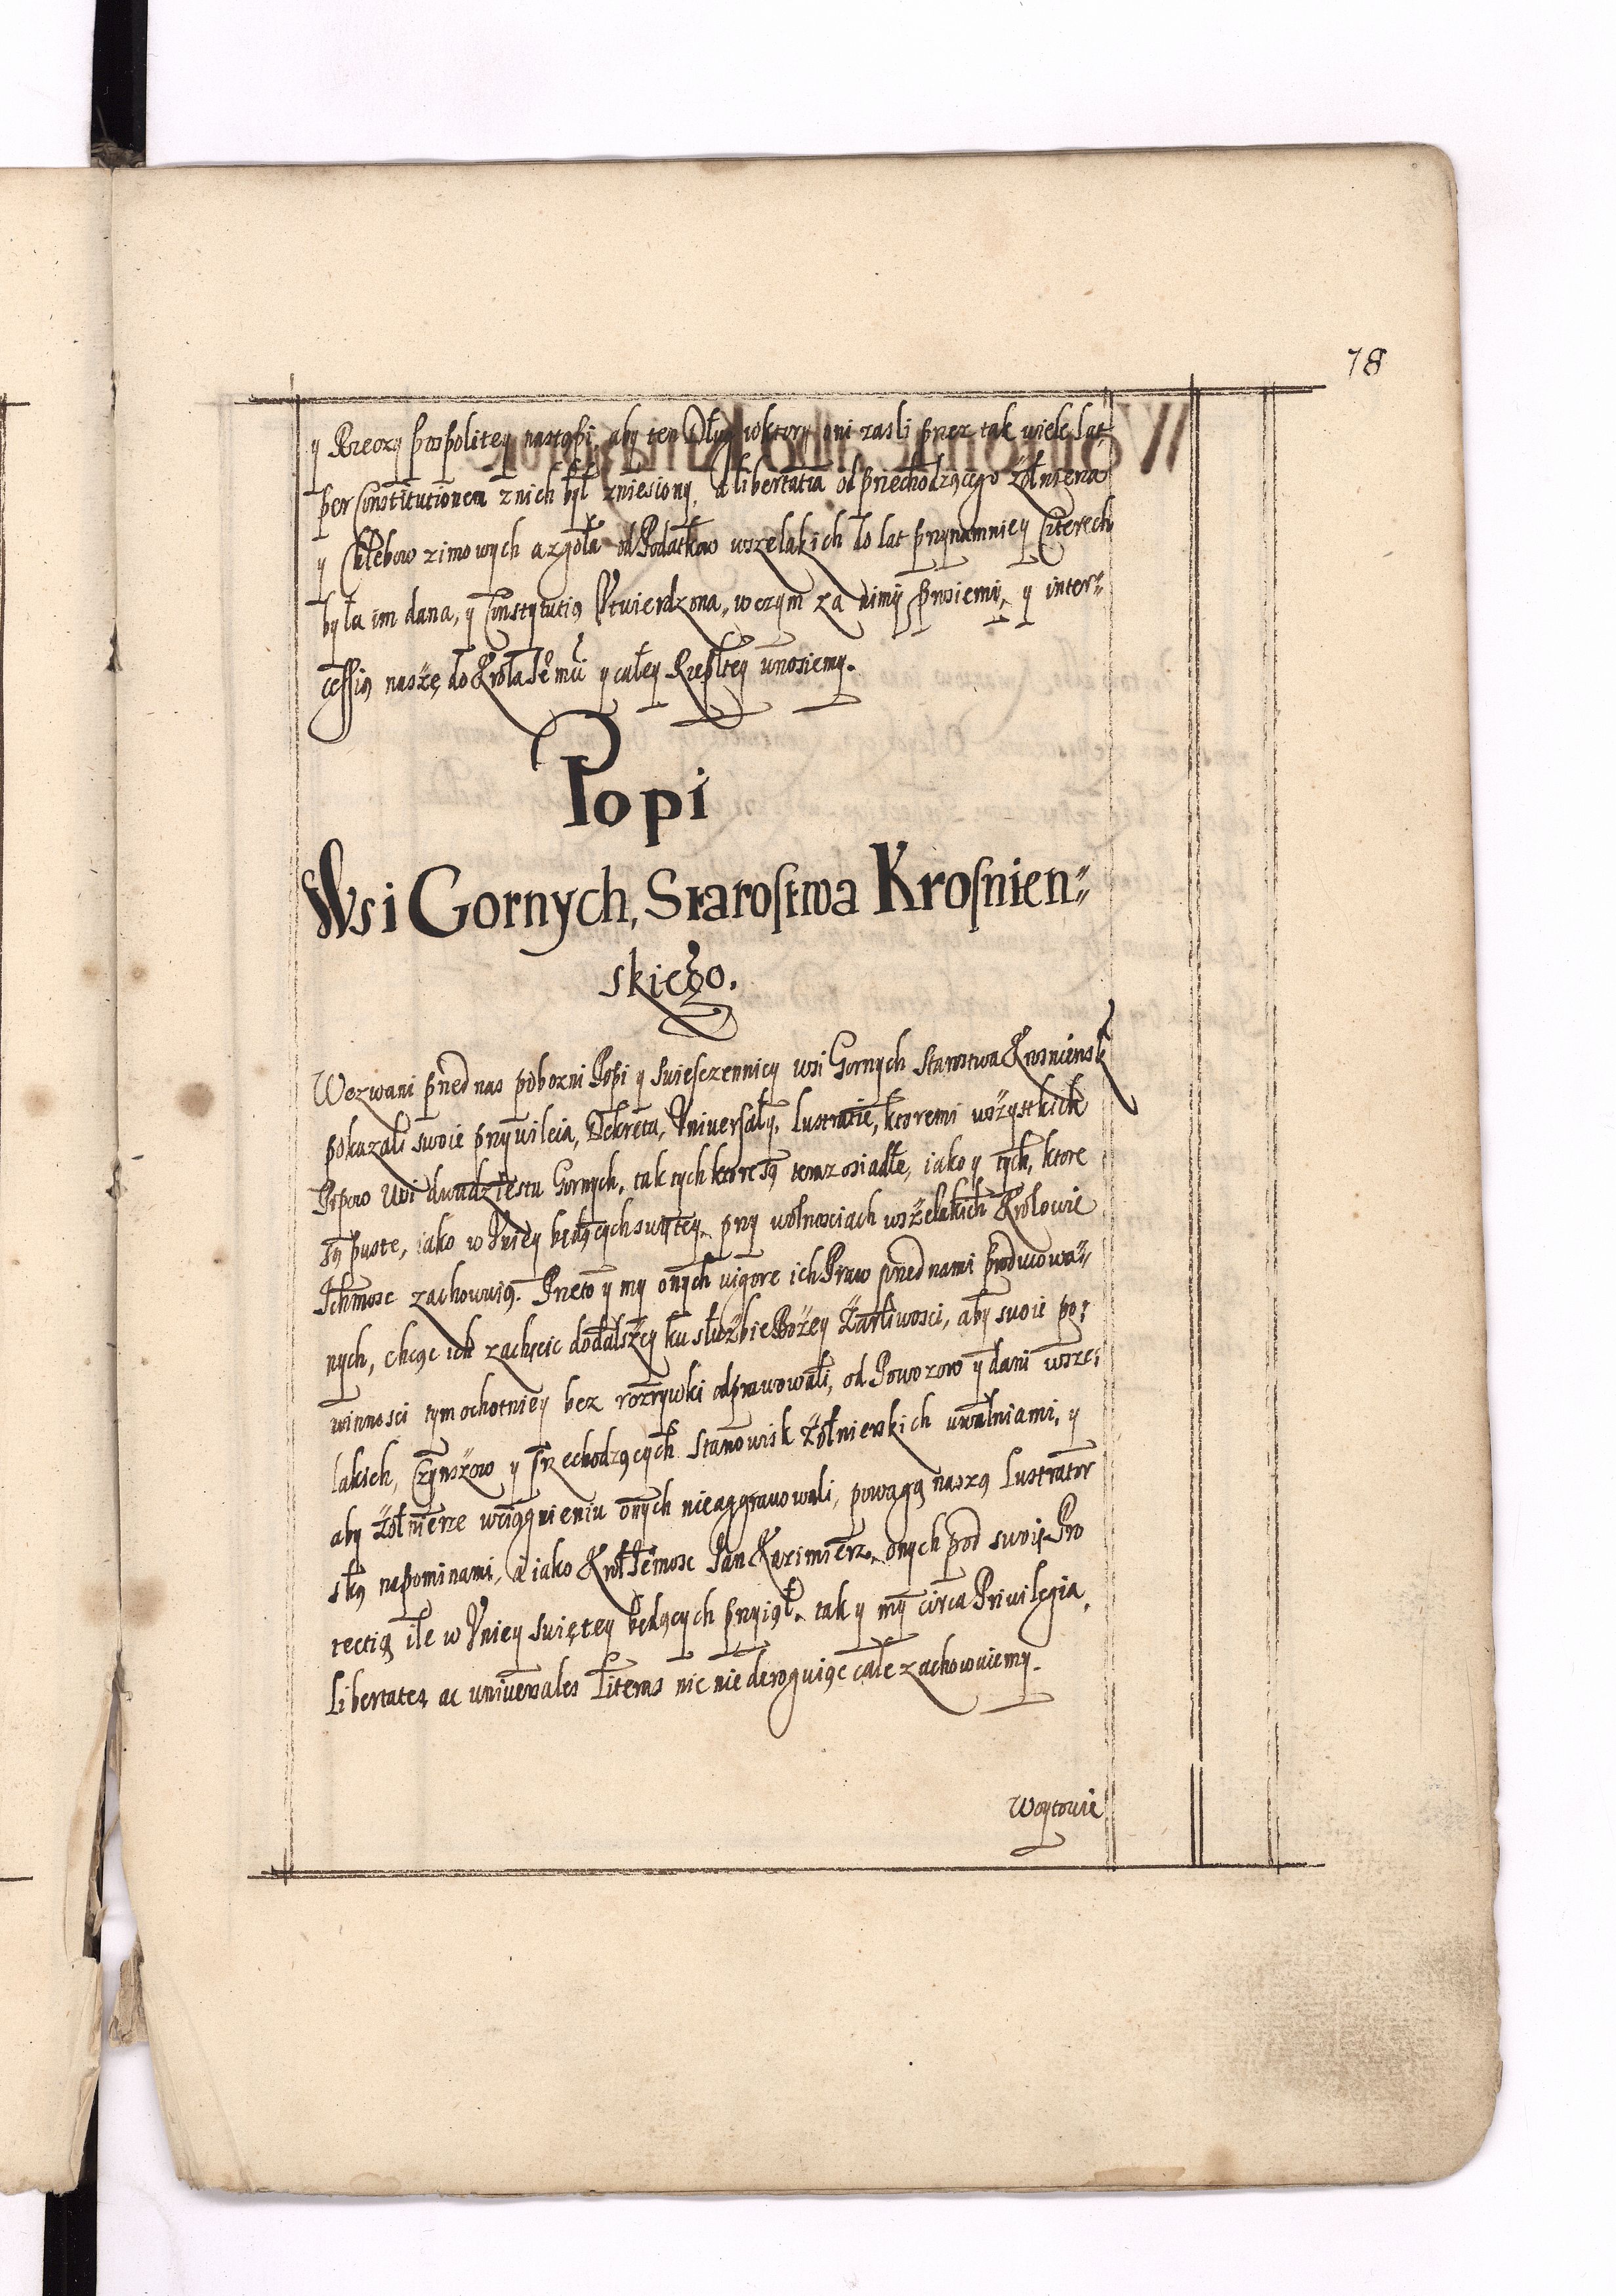 78
y Rzeczy pospolitey nastąpi, aby ten Dług wktory oni zasli przez tak wiele lat
per Constitutionem znich był zniesiony, a libertatia od przechodzącego żołnierza
y Chlebow zimowych azgoła od Podatkow wszelakich do lat przynamniey Czterech
była im dana, y Constytutią Vtwierdzona, wczym za nimy prosiemy, y inter⸗
cessią naszę do Krola Je° mci y całey Rzeplitey wnosiemy.
Popi
Wsi Gornych, Starostwa Krosnien⸗
skiego.
Wezwani przed nas pobozni Popi y Swiesczennicy wsi Gornych Starostwa Krosniensk
pokazali swoie przywileia, Dekreta, Vniversały, Lustratie, ktoremi wszystkich
Popow Wsi dwudziestu Gornych, tak tych ktore są teraz osiadłe, iako y tych, ktore
są puste, iako w Vniey będących swiętey, przy wolnosciach wszelakich Krolowie
Ichmosc zachowuią. Przeto y my onych vigore ich Praw przed nami produkowa⸗
nych, chcąc ich zachęcic do dalszey ku służbie Bożey Żarliwosci, aby swoie po⸗
winnosci tym ochotniey bez rozrywki odprawowali, od Powozow y dani wsze⸗
lakich, Czynszow y Przechodzących Stanowisk Żołnierskich uwalniami, y
aby Żołnierze wciągnieniu onych nieaggrawowali, powagą naszą Lustrator
ską napominami, a iako Krol Je°mosc Jan Kazimierz, onych pod swoię Pro
tectią ile w Vniey swiętey będących przyiął, tak y my circa Privilegia,
Libertates ac universales Literas nic nie deroguiąc cale zachowuiemy.
Woytowie